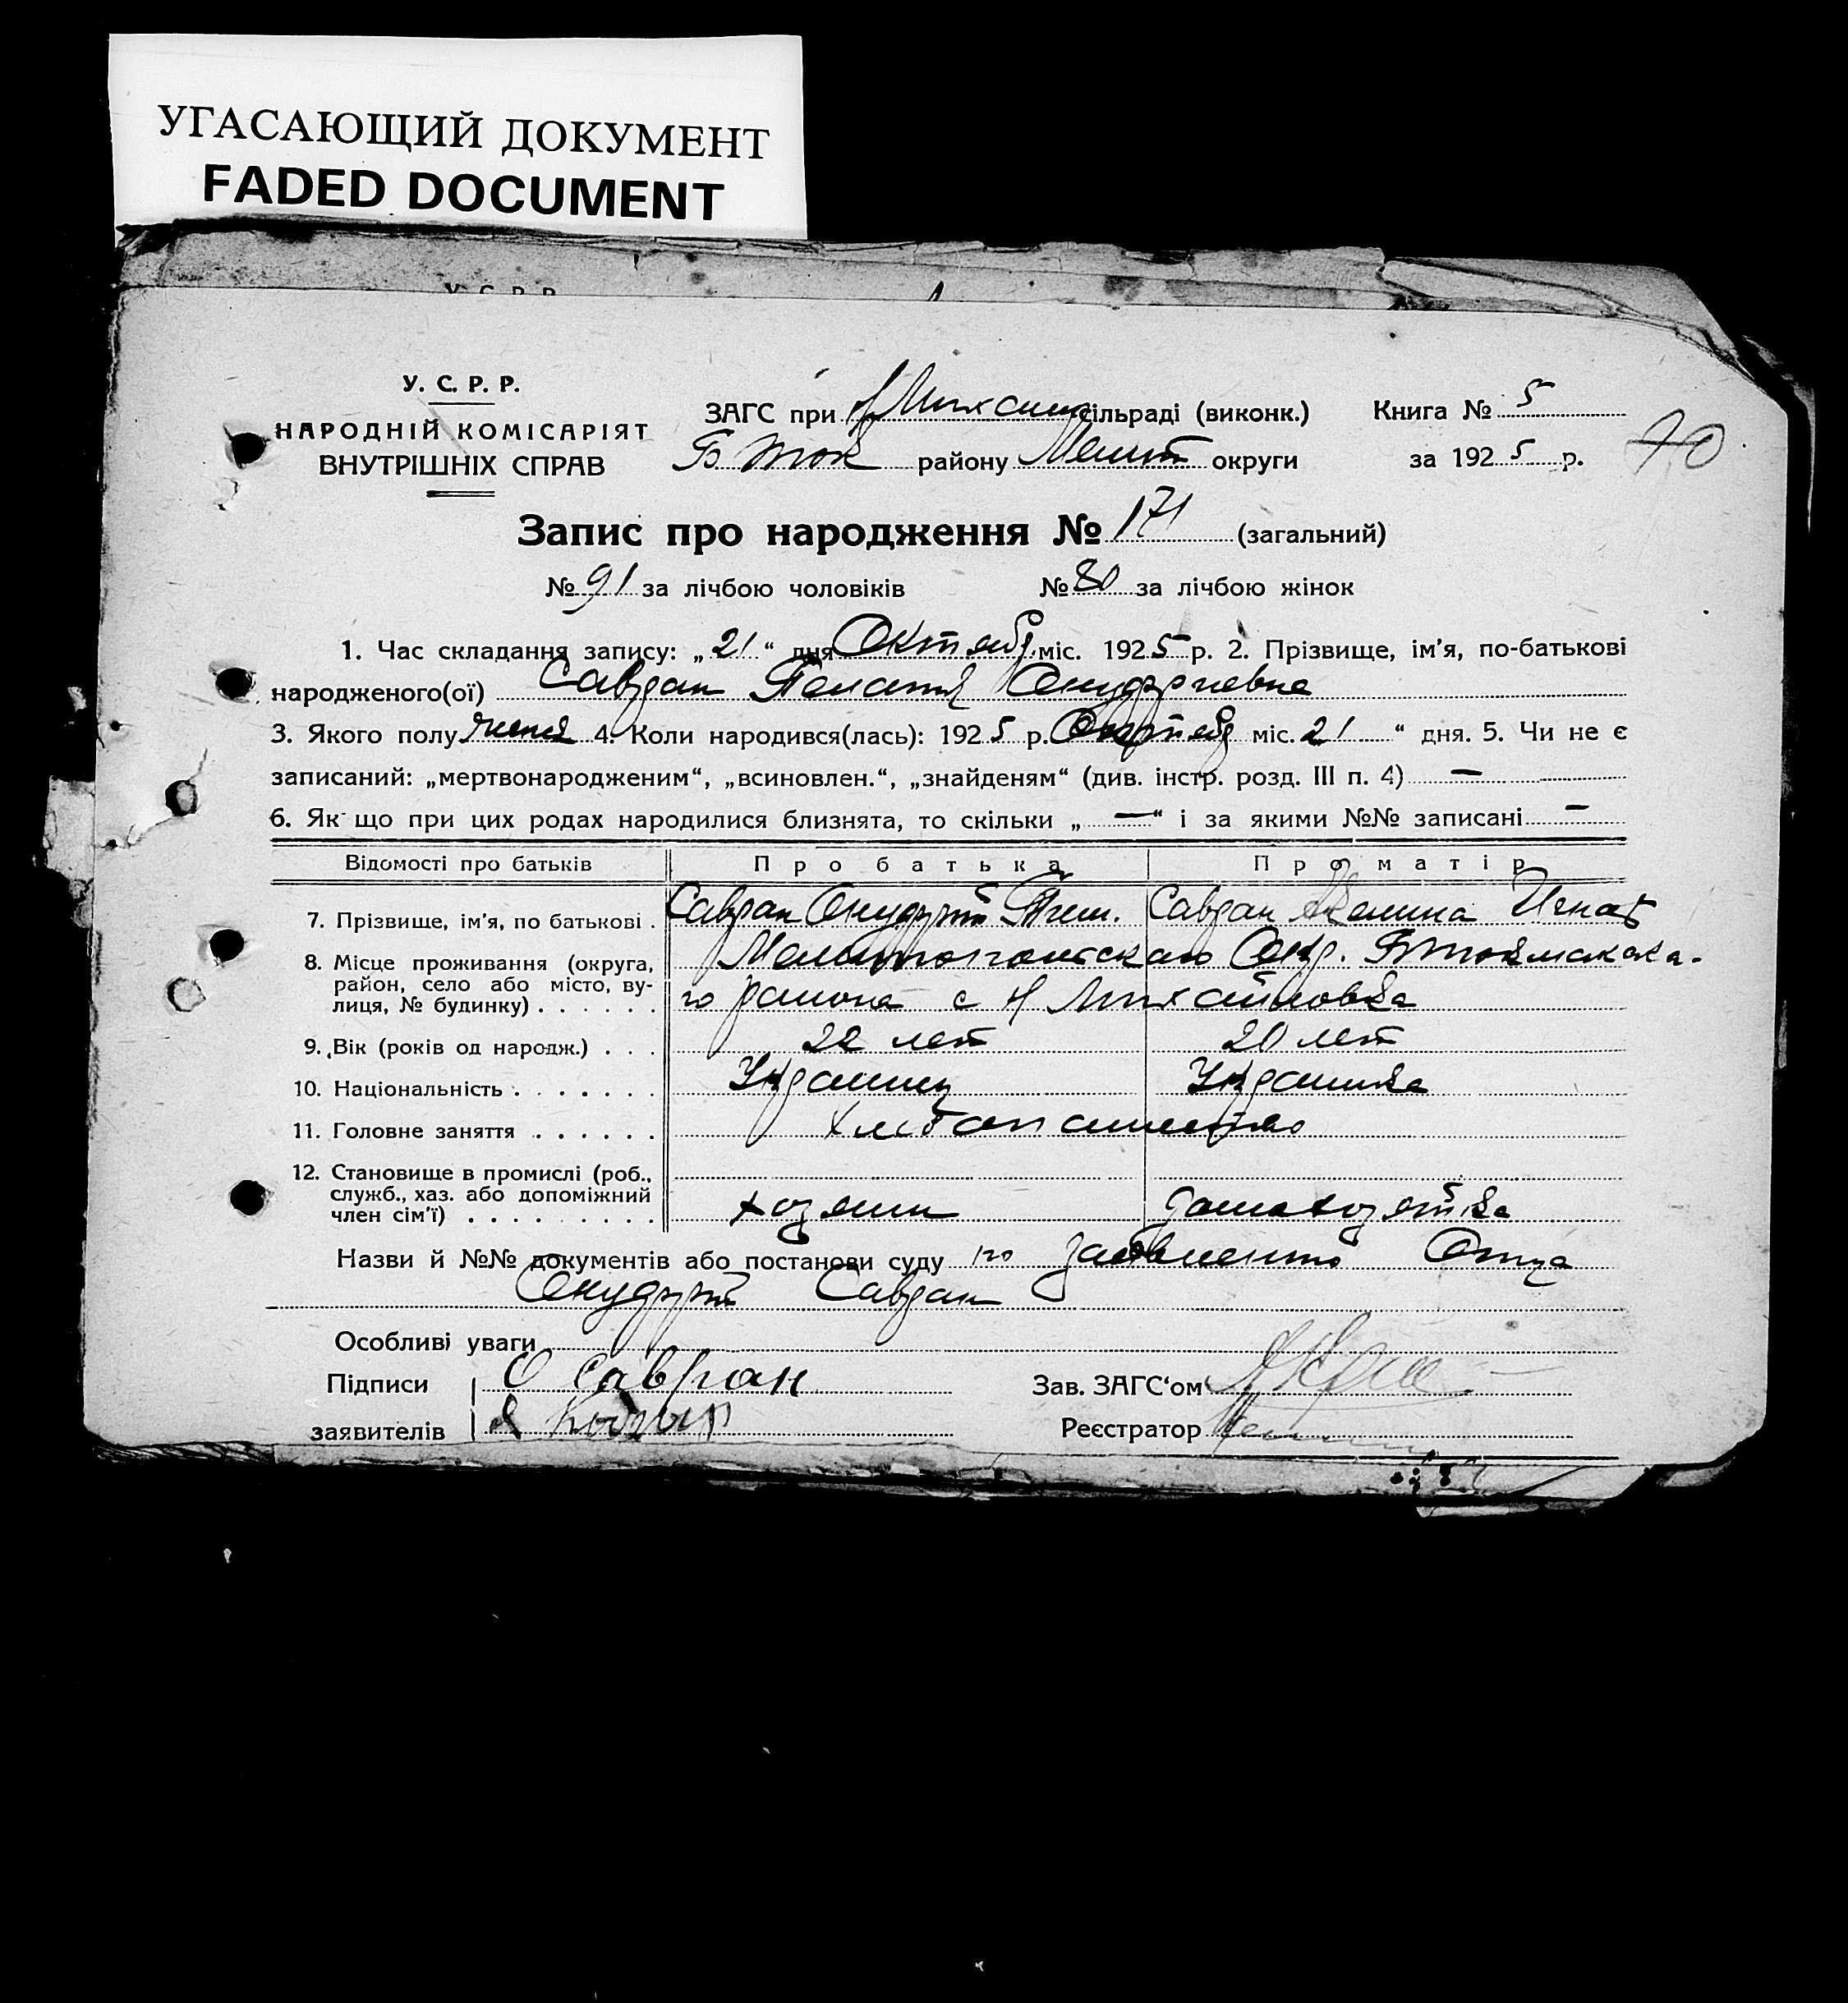 УГАСАЮЩИЙ ДОКУМЕНТ
FADED DOCUMENT
У. С. Р. Р.
У. С. Р. Р.
НАРОДНІЙ КОМІСАРІЯТ
ВНУТРІШНІХ СПРАВ
ЗАГС при Н Михайл сільраді (виконк.) Книга № 5
Б Ток району Мелит округи за 1925 р.
70
Запис про народження № 171 (загальний)
№ 91 за лічбою чоловіків № 80 за лічбою жінок
1. Час складання запису: „21“ дня Октябр міс. 1925 р. 2. Прізвище, ім'я, по-батькові
народженого(ої) Савран Пелагія Онуфриевна
3. Якого полу женск 4. Коли народився(лась): 1925 р. Октябр міс. 21 “ дня. 5. Чи не є
записаний: „мертвонародженим“, „всиновлен.“, „знайденям“ (див. інстр. розд. III п. 4) —
6. Як що при цих родах народилися близнята, то скільки „ — “ і за якими №№ записані —
Відомості про батьків Про батька Про матір
7. Прізвище, ім'я, по батькові . Савран Онуфрий Тим. Савран Игнат
8. Місце проживання (округа, район, село або місто, вулиця, № будинку) . . . . . . Мелитопольскаго Окр. Б Токмакска-
го района с Н Михайловка
9. Вік (років од народж.) . . . 22 лет 20 лет
10. Національність . . . . . . . Украинец Украинка
11. Головне заняття . . . . . . Хлебопашество
12. Становище в промислі (роб.,
служб., хаз. або допоміжний
член сім'ї) . . . . . . . . . хозяин домахозяйка
Назви й №№ документів або постанови суду по заявлению Отца
Онуфрий Савран
Особливі уваги
Підписи О Савран Зав. ЗАГС‘ом
заявителів Реєстратор